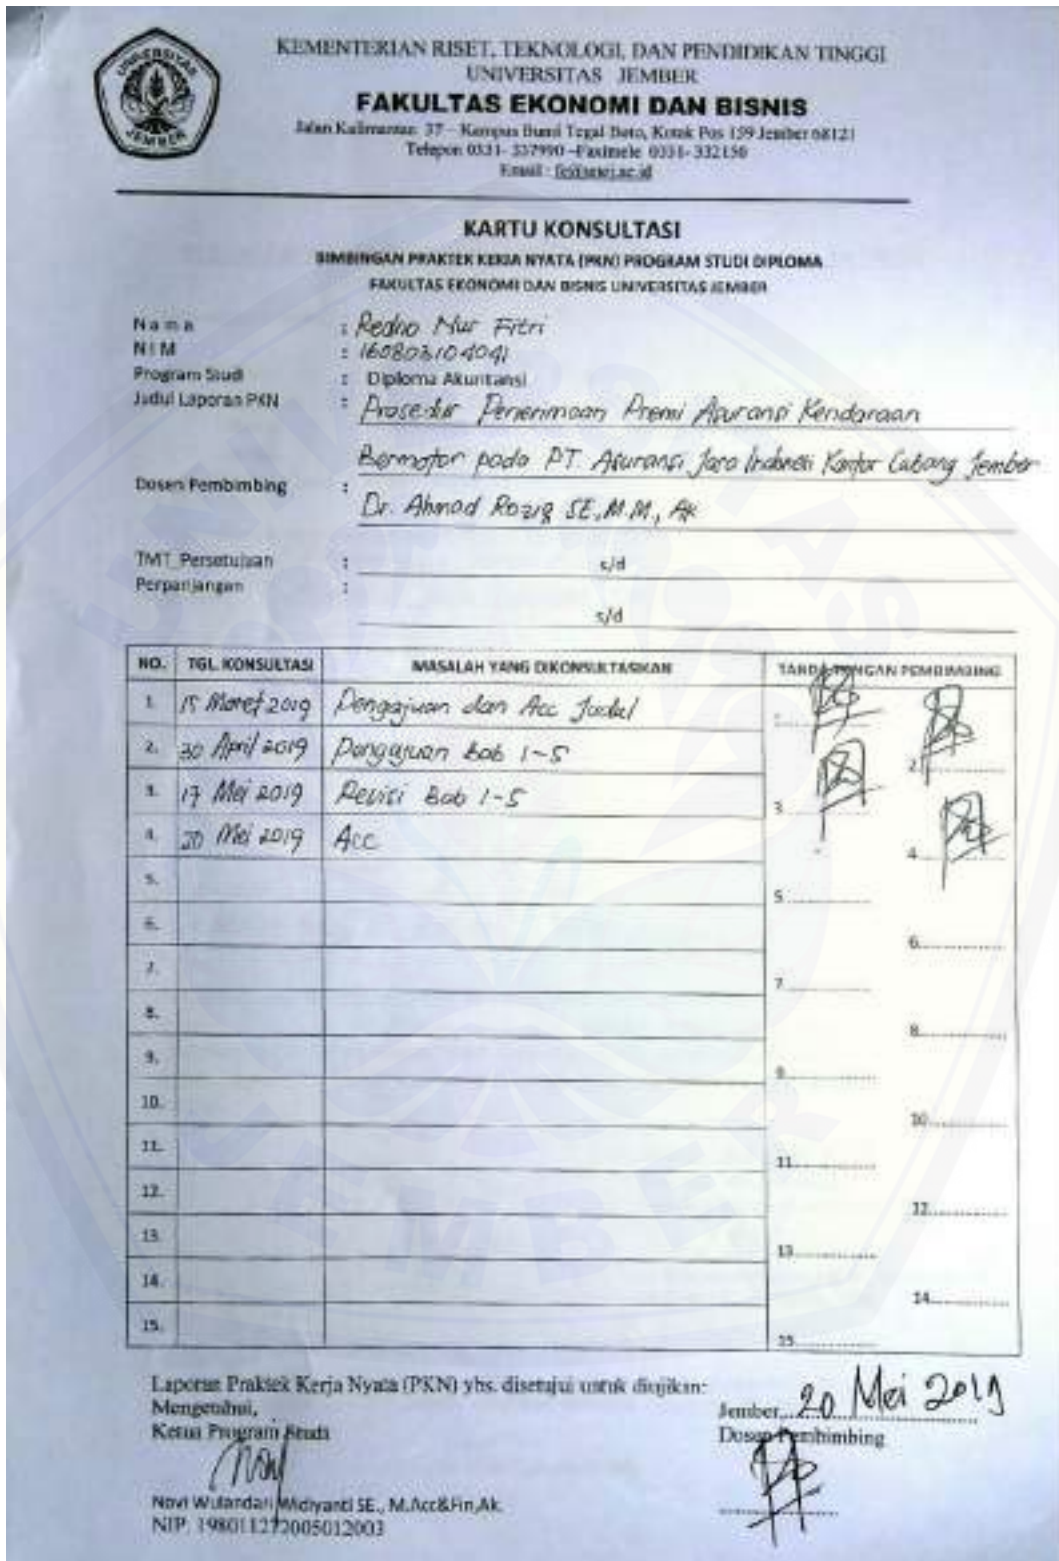 UNIVERSITAS
JEMBER
KEMENTERIAN RISET, TEKNOLOGI, DAN PENDIDIKAN TINGGI
UNIVERSITAS JEMBER
FAKULTAS EKONOMI DAN BISNIS
Jalan Kalimantan 37 – Kampus Bumi Tegal Boto, Kotak Pos 159 Jember 68121
Telepon 0331- 337990 –Faximele 0331- 332150
Email :
KARTU KONSULTASI
BIMBINGAN PRAKTEK KERJA NYATA (PKN) PROGRAM STUDI DIPLOMA
FAKULTAS EKONOMI DAN BISNIS UNIVERSITAS JEMBER
Nama : Redho Nur Fitri
NIM : 160803104041
Program Studi : Diploma Akuntansi
Judul Laporan PKN : Prosedur Penerimaan Premi Asuransi Kendaraan
Bermotor pada PT Asuransi Jasa Kantor Cabang Jember
Dosen Pembimbing : Dr. Ahmad Roziq SE, M.M., Ak
TMT_Persetujuan : s/d
Perpanjangan :
s/d
NO. TGL. KONSULTASI MASALAH YANG DIKONSULTASIKAN TANDA TANGAN PEMBIMBING
1. 15 Maret 2019 Pengajuan dan Acc Judul
2. 30 April 2019 Pengajuan Bab 1-5 2
3. 17 Mei 2019 Revisi Bab 1-5 3
4. 20 Mei 2019 Acc 4
5. 5
6. 6
7. 7
8. 8
9. 9
10. 10
11. 11
12. 12
13. 13
14. 14
15. 15
Laporan Praktek Kerja Nyata (PKN) ybs. disetujui untuk diujikan:
Mengetahui, Jember, 20 Mei 2019
Ketua Program Studi Dosen Pembimbing
Novi Wulandari Widiyanti SE., M.Acc&Fin,Ak.
NIP. 198011272005012003